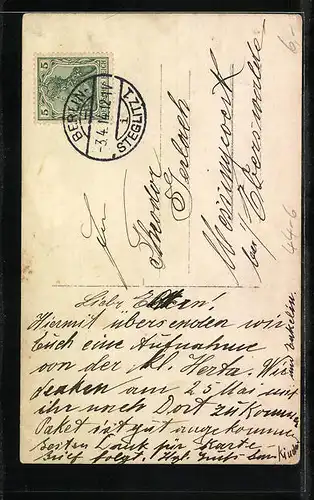 5 5
BERLIN-
-3.4.16.12-1V.
STEGLITZ 1
An
Theodor
Gerlach
Messingwerk
bei Eberswalde
Liebe Eltern!
Hiermit übersenden wir
Euch eine Aufnahme
von der kl. Herta. Wir
denken am 25 Mai mit
ihr nach Dort zu kommen
Paket ist gut angekommen
besten Dank für Karte
Brief folgt. Hzl. Gruß
und
6-